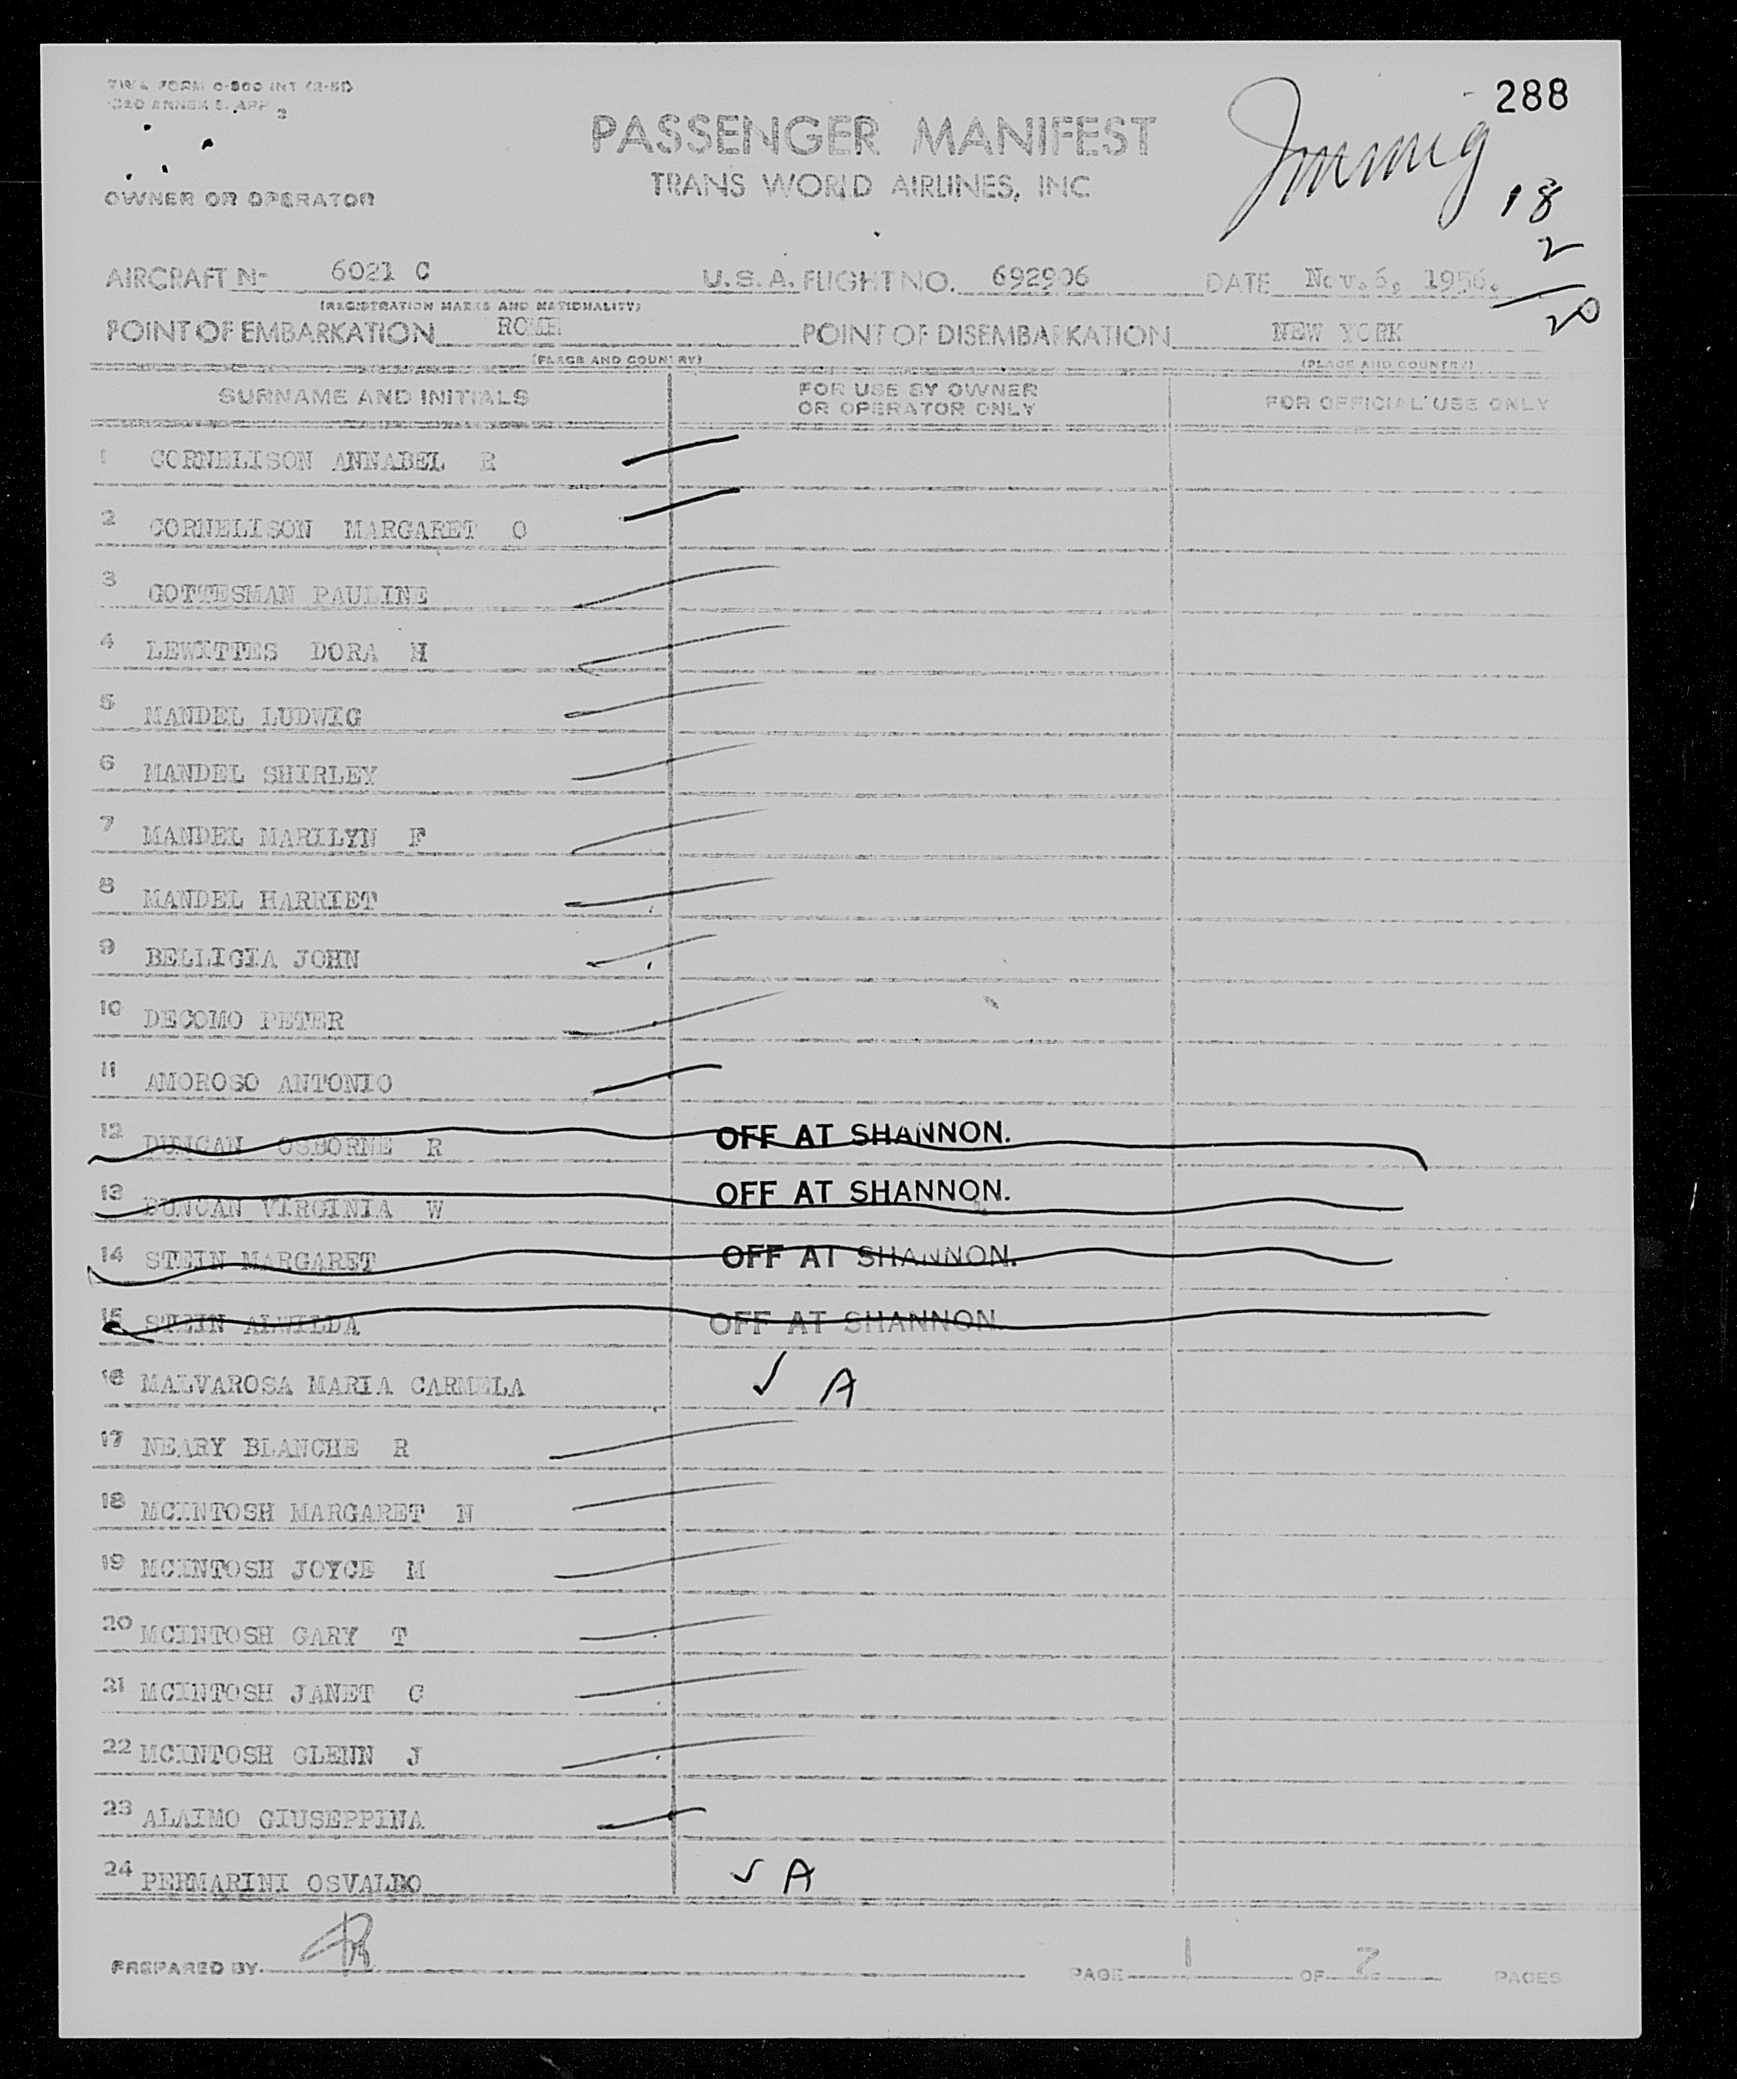 288
TWA FORM O-800 INT (2-51)
ICAO ANNEX 9, APP 2
PASSENGER MANIFEST
Immig
TRANS WORLD AIRLINES, INC
OWNER OR OPERATOR
18
2
20
AIRCRAFT No 6021 C U.S.A. FLIGHT NO. 692906 DATE Nov. 6, 1956.
(REGISTRATION MARKS AND NATIONALITY)
POINT OF EMBARKATION ROME POINT OF DISEMBARKATION NEW YORK
(PLACE AND COUNTRY) (PLACE AND COUNTRY)
SURNAME AND INITIALS FOR USE BY OWNER OR OPERATOR ONLY FOR OFFICIAL USE ONLY
1 CORNELISON ANNABEL R
2 CORNELISON MARGARET O
3 GOTTESMAN PAULINE
4 LEWITTES DORA H
5 MANDEL LUDWIG
6 MANDEL SHIRLEY
7 MANDEL MARILYN F
8 MANDEL HARRIET
9 BELLIGIA JOHN
10 DECOMO PETER
11 AMOROSO ANTONIO
12 DUNCAN OSBORNE R OFF AT SHANNON.
13 DUNCAN VIRGINIA W OFF AT SHANNON.
14 STEIN MARGARET OFF AT SHANNON.
15 STEIN ALWILDA OFF AT SHANNON.
16 MALVAROSA MARIA CARMELA ✓ A
17 NEARY BLANCHE R
18 MCINTOSH MARGARET N
19 MCINTOSH JOYCE M
20 MCINTOSH GARY T
21 MCINTOSH JANET G
22 MCINTOSH GLENN J
23 ALAIMO GIUSEPPINA
24 PERMARINI OSVALDO ✓ A
PREPARED BY PAGE 1 OF 2 PAGES